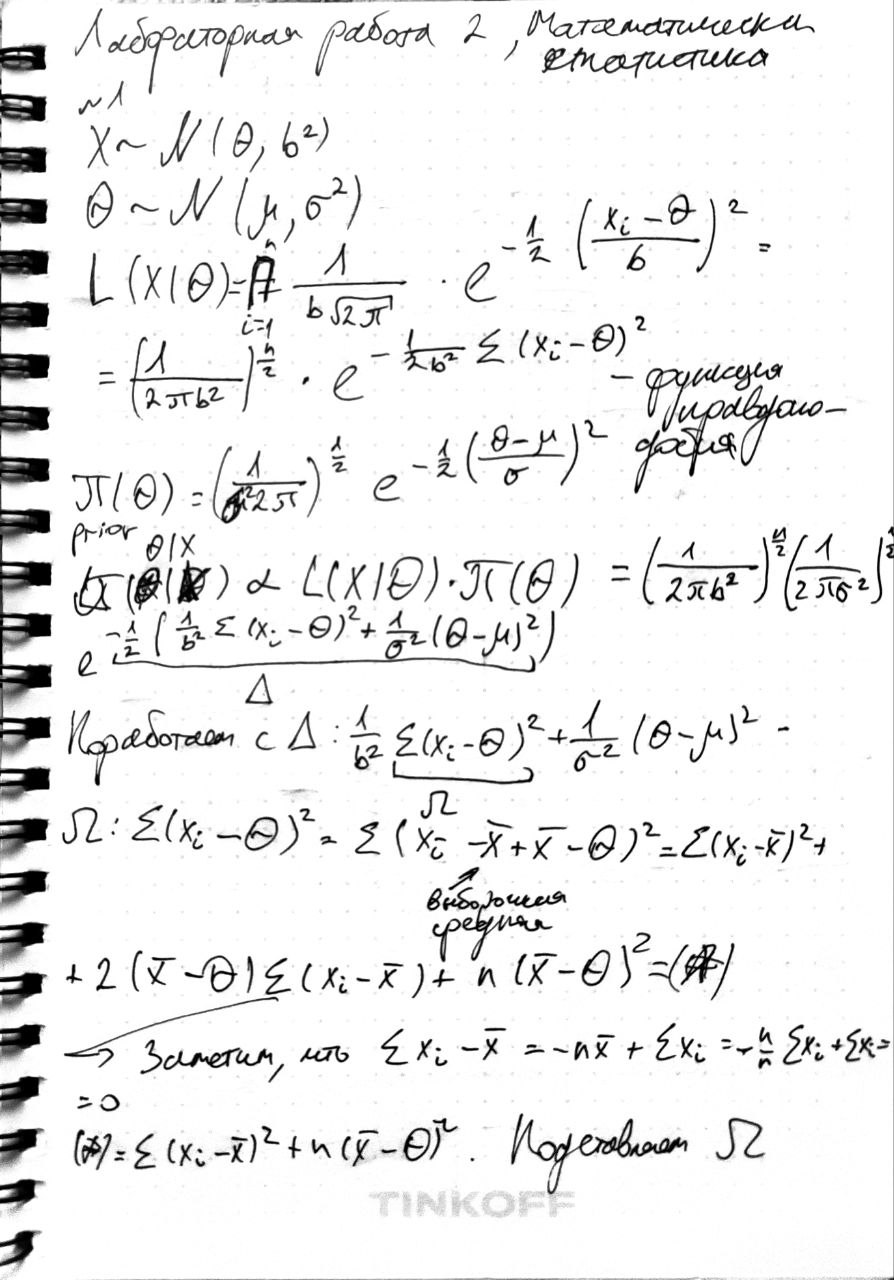 Лабораторная работа 2, Математически
статистика
~1
X ~ N(θ, b²)
θ ~ N(μ, σ²)
L(X|θ) = ∏ᵢ₌₁ⁿ 1/(b√2π) · e^(-1/2 ((xᵢ-θ)/b)²) =
= (1/(2πb²))^(n/2) · e^(-1/(2b²) Σ(xᵢ-θ)²)
- функция
правдопо-
добия
π(θ) = (1/(σ²2π))^(1/2) e^(-1/2 ((θ-μ)/σ)²)
prior
θ|X
∝ L(X|θ)·π(θ) = (1/(2πb²))^(n/2) (1/(2πσ²))^(1/2)
e^(-1/2 (1/b² Σ(xᵢ-θ)² + 1/σ² (θ-μ)²))
Δ
Поработаем с Δ: 1/b² Σ(xᵢ-θ)² + 1/σ² (θ-μ)² -
Ω
Ω: Σ(xᵢ-θ)² = Σ(xᵢ - x̄ + x̄ - θ)² = Σ(xᵢ-x̄)² +
выборочная
средняя
+ 2(x̄-θ) Σ(xᵢ-x̄) + n(x̄-θ)² = (*)
→ Заметим, что Σxᵢ - x̄ = -nx̄ + Σxᵢ = -n/n Σxᵢ + Σxᵢ =
= 0
(*) = Σ(xᵢ-x̄)² + n(x̄-θ)². Подставляем Ω
TINKOFF